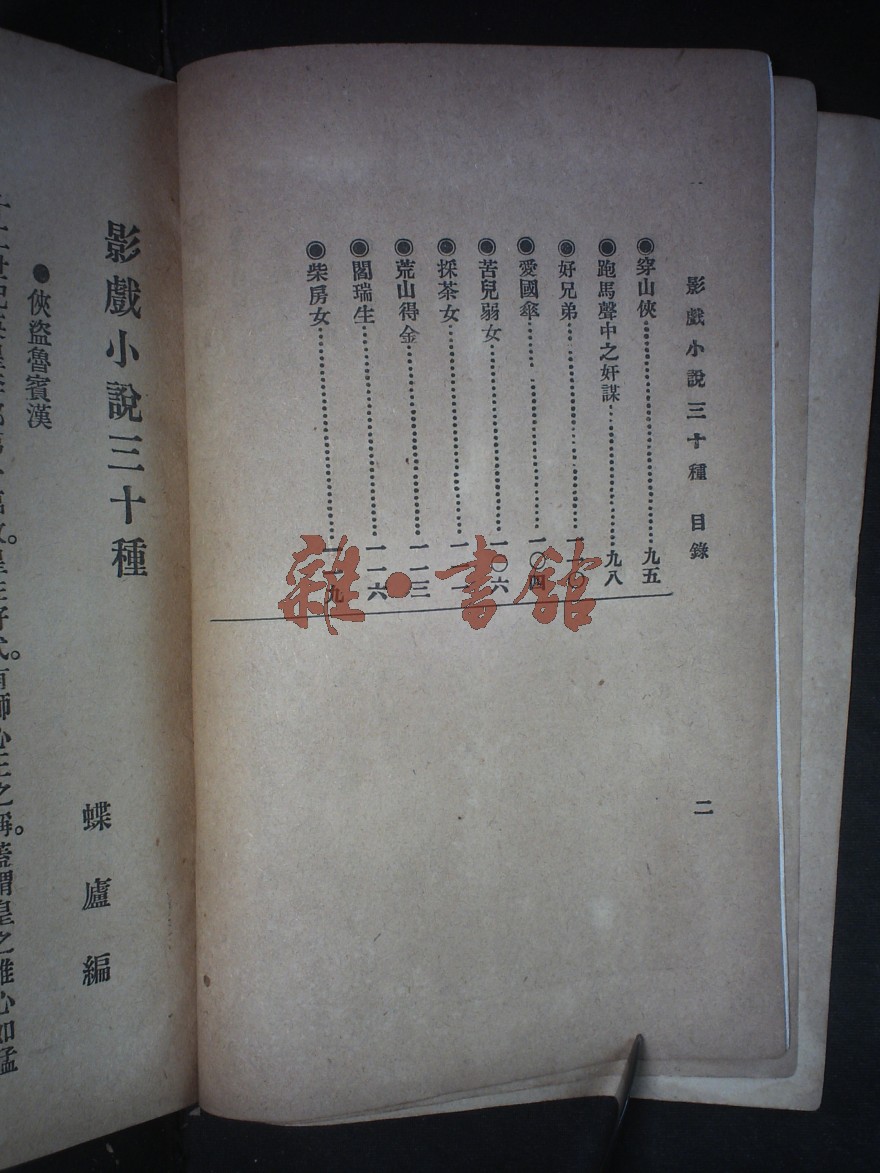 影戲小說三十種 目錄
二
◉穿山俠……九五
◉跑馬聲中之奸謀……九八
◉好兄弟……
◉愛國傘……一〇四
◉苦兒弱女……一〇六
◉採茶女……
◉荒山得金……一一三
◉閻瑞生……一一六
◉柴房女……一一九
影戲小說三十種
蝶廬編
●俠盜魯賓漢
之稱。蓋謂皇之雄心如猛
雜·書館